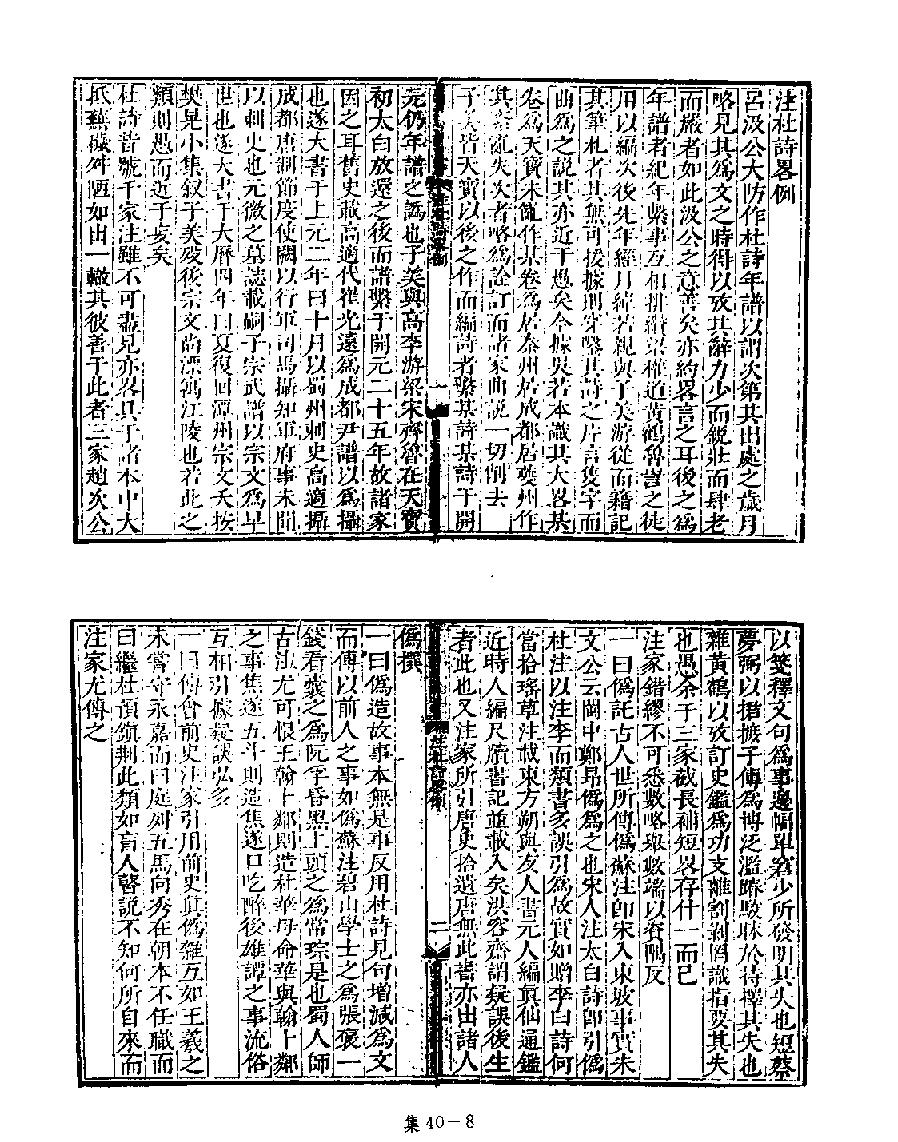 注杜詩畧例
呂汲公大防作杜詩年譜以謂次第其出處之歲月
略見其爲文之時得以攷其辭力少而銳壯而肆老
而嚴者如此汲公之意善矣亦約畧言之耳後之爲
年譜者紀年繫事互相排纘梁權道黃鶴魯訔之徒
用以編次後先年經月緯若親與子美游從而籍記
其筆札者其無可援據則穿鑿其詩之片言隻字而
曲爲之說其亦近于愚矣今據吳若本識其大畧某
卷爲天寶未亂作某卷爲居秦州居成都居夔州作
其紊亂失次者略爲詮訂而諸家曲說一切削去
子美皆天寶以後之作而編詩者繫某詩某詩于開
元仍年譜之譌也子美與高李游梁宋齊魯在天寶
初太白放還之後而譜繫于開元二十五年故諸家
因之耳舊史載高適代崔光遠爲成都尹譜以爲攝
也遂大書于上元二年曰十月以蜀州刺史高適攝
成都唐制節度使闕以行軍司馬攝知軍府事未聞
以刺史也元微之墓誌載嗣子宗武譜以宗文爲早
世也遂大書于大曆四年曰夏復回潭州宗文夭按
樊晃小集叙子美歿後宗文尚漂寓江陵也若此之
類則愚而近于妄矣
杜詩昔號千家注雖不可盡見亦畧具于諸本中大
抵蕪穢舛陋如出一轍其彼善于此者三家趙次公
以箋釋文句爲事邊幅單窘少所發明其失也短蔡
夢弼以捃摭子傳爲博泛濫踳駁昧於持擇其失也
雜黃鶴以攷訂史鑑爲功支離割剥罔識指要其失
也愚余于三家截長補短畧存什一而已
注家錯繆不可悉數略舉數端以資隅反
一曰僞託古人世所傳僞蘇注卽宋人東坡事實朱
文公云閩中鄭昂僞爲之也宋人注太白詩卽引僞
杜注以注李而類書多誤引爲故實如贈李白詩何
當拾瑤草注載東方朔與友人書元人編真仙通鑑
近時人編尺牘書記並載入矣洪容齋謂疑誤後生
者此也又注家所引唐史拾遺唐無此書亦出諸人
僞撰
一曰僞造故事本無是事反用杜詩見句增減爲文
而傅以前人之事如僞蘇注碧山學士之爲張褒一
錢看囊之爲阮孚昏黑上頭之爲常琮是也蜀人師
古注尤可恨王翰卜鄰則造杜華母命華與翰卜鄰
之事焦遂五斗則造焦遂口吃醉後雄譚之事流俗
互相引據疑誤弘多
一曰傅會前史注家引用前史真僞雜互如王羲之
未嘗守永嘉而曰庭列五馬向秀在朝本不任職而
曰繼杜預鎮荆此類如盲人瞽說不知何所自來而
注家尤傳之
集 40－8